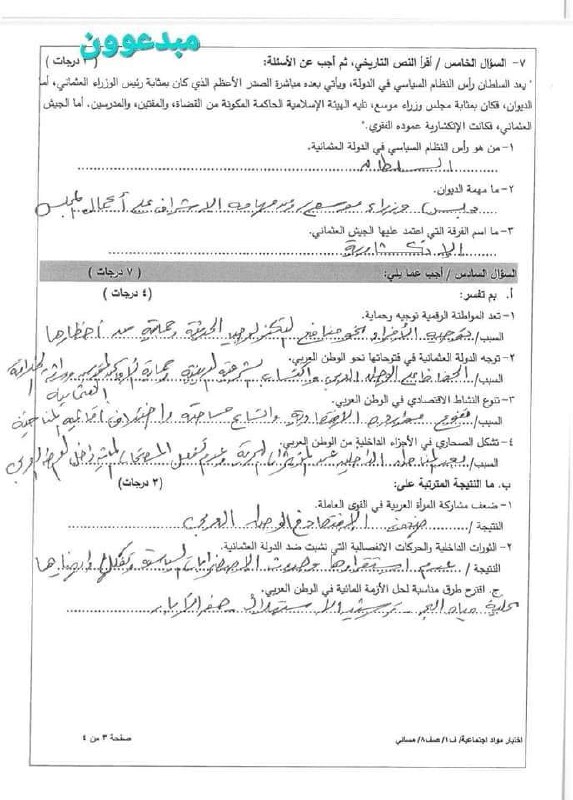 مبدعوون
٧- السؤال الخامس / أقرأ النص التاريخي، ثم أجب عن الأسئلة: ( ٣ درجات )
" يعد السلطان رأس النظام السياسي في الدولة، ويأتي بعده مباشرة الصدر الأعظم الذي كان بمثابة رئيس الوزراء العثماني، أما
الديوان، فكان بمثابة مجلس وزراء موسع، تليه الهيئة الإسلامية الحاكمة المكونة من القضاة، والمفتين، والمدرسين. أما الجيش
العثماني، فكانت الإنكشارية عموده الفقري."
١- من هو رأس النظام السياسي في الدولة العثمانية.
السلطان
٢- ما مهمة الديوان.
مجلس وزراء موسع ومن مهامه الاشراف على أعمال المجلس
٣- ما اسم الفرقة التي اعتمد عليها الجيش العثماني.
الإنكشارية
السؤال السادس / أجب عما يلي: ( ٧ درجات )
أ. بم تفسر: ( ٤ درجات )
١- تعد المواطنة الرقمية توجيه وحماية.
السبب/ توجيه الأفراد نحو منافع التكنولوجيا الحديثة وحماية من أخطارها
٢- توجه الدولة العثمانية في فتوحاتها نحو الوطن العربي.
السبب/ الوطن العربي واكتساب الشرعية الدينية وحماية
العثمانية
٣- تنوع النشاط الاقتصادي في الوطن العربي.
السبب/ تنوع موارده الاقتصادية واتساع مساحته واختلاف أقاليمه المناخية
٤- تشكل الصحاري في الأجزاء الداخلية من الوطن العربي.
السبب/ بعد المناطق الداخلية عن المؤثرات البحرية وعدم داخل الوطن العربي
ب. ما النتيجة المترتبة على: (٢ درجات)
١- ضعف مشاركة المرأة العربية في القوى العاملة.
النتيجة / ضعف الاقتصاد في الوطن العربي
٢- الثورات الداخلية والحركات الانفصالية التي نشبت ضد الدولة العثمانية.
النتيجة / عدم استقرارها وحدوث الاضطرابات السياسية
ج. اقترح طرق مناسبة لحل الأزمة المائية في الوطن العربي.
تحلية مياه البحر - ترشيد الاستهلاك - حفر الآبار
اختبار مواد اجتماعية/ ف١/ صف٨/ مسائي
صفحة ٣ من ٤